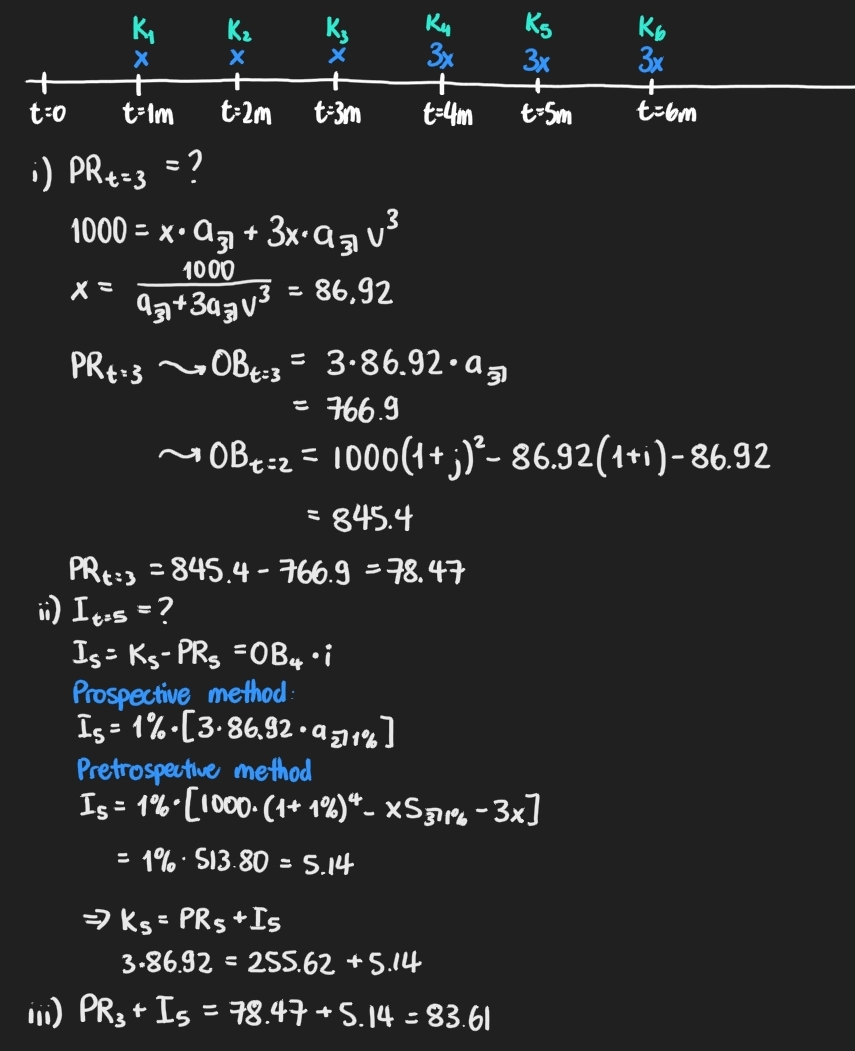 K₁ K₂ K₃ K₄ K₅ K₆
x x x 3x 3x 3x
t=0 t=1m t=2m t=3m t=4m t=5m t=6m
i) PR_{t=3} = ?
1000 = x · a_{3⌉} + 3x · a_{3⌉} v³
x = 1000 / (a_{3⌉} + 3a_{3⌉}v³) = 86,92
PR_{t=3} ⇝ OB_{t=3} = 3·86.92·a_{3⌉}
= 766.9
⇝ OB_{t=2} = 1000(1+j)² - 86.92(1+i) - 86.92
= 845.4
PR_{t=3} = 845.4 - 766.9 = 78.47
ii) I_{t=5} = ?
I₅ = K₅ - PR₅ = OB₄ · i
Prospective method:
I₅ = 1% · [3·86,92·a_{2⌉1%}]
Pretrospective method
I₅ = 1% · [1000·(1+1%)⁴ - xS_{3⌉1%} - 3x]
= 1% · 513.80 = 5.14
⇒ K₅ = PR₅ + I₅
3·86.92 = 255.62 + 5.14
iii) PR₃ + I₅ = 78.47 + 5.14 = 83.61